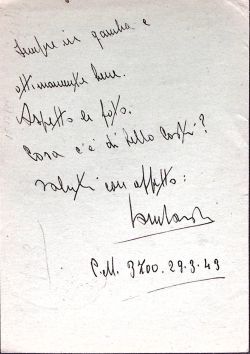 sempre in gamba e
ottimamente bene.
Aspetto le foto.
Cosa c'è di bello costì?
saluti con affetto:
P.M. 3700. 29.3.43